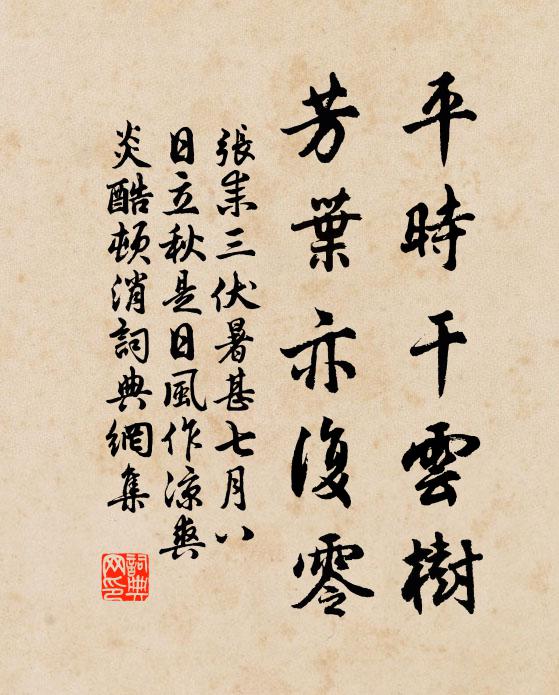 平時干雲樹
芳葉亦復零
張耒三伏暑甚七月八
日立秋是日風作涼爽
炎酷頓消詞典網集
詞典
网印